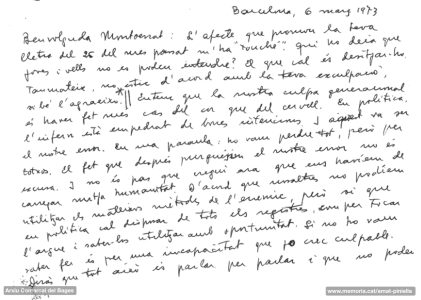 Barcelona, 6 març 1973
Benvolguda Montserrat: L'afecte que promou la teva
lletra del 25 del mes passat m'ha "touché". qui ho deia que
joves i vells no es poden entendre? El que cal és desitjar-ho
Tanmateix, no estic d'acord amb la teva exculpació,
si bé l'agraeixo. Entenc que la nostra culpa generacional
és haver fet més cas del cor que del cervell. En política,
l'infern està empedrat de bones intencions. I aquest va ser
el nostre error. En una paraula: ho vam perdre tot, però per
totxos. El fet que després el nostre error no és
excusa. I no és pas que cregui ara que ens havíem de
carregar mitja humanitat. D'acord que nosaltres no podíem
utilitzar els mateixos mètodes de l'enemic, però sí que
en política cal disposar de tots els registres, com per tocar
l'orgue i saber-los utilitzar amb oportunitat. Si no ho vam
saber fer és per una incapacitat que jo crec culpable.
Diràs que tot això és parlar per parlar i que no poder
Arxiu Comarcal del Bages
www.memoria.cat/amat-piniella